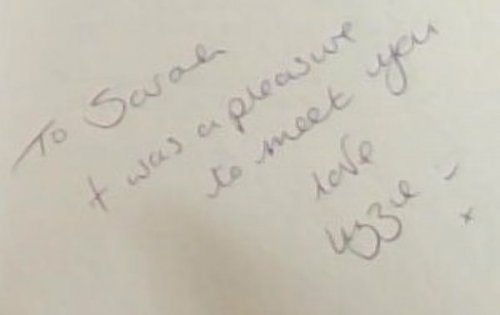 To Sarah
t was a pleasure
to meet you
love
Lizzie -
x